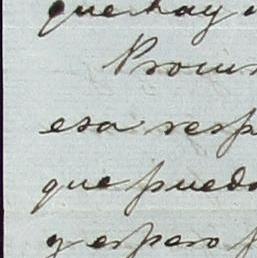 que hay
Procur
esa resp
que pued
y espero